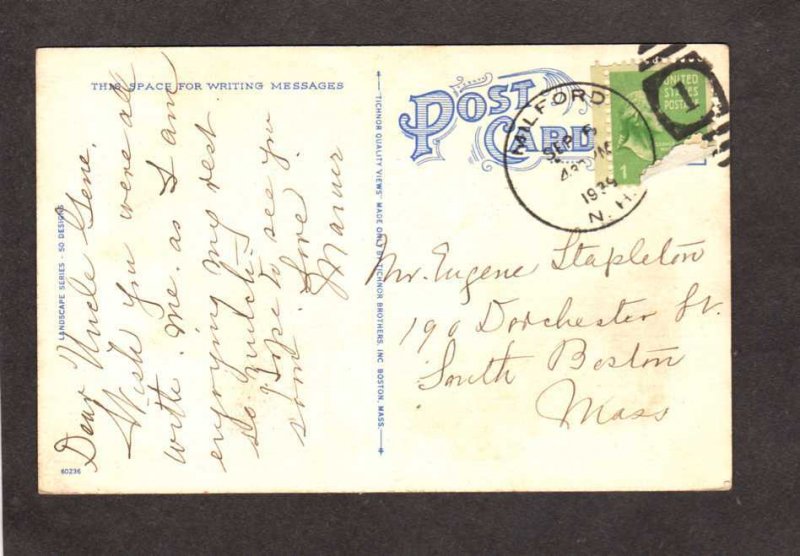 THIS SPACE FOR WRITING MESSAGES
POST CARD
MILFORD
SEP 6
1939
N. H.
1
UNITED
STATES
POSTAGE
1
LANDSCAPE SERIES - 50 DESIGNS
"TICHNOR QUALITY VIEWS" MADE ONLY BY TICHNOR BROTHERS, INC. BOSTON, MASS.
60236
Dear Uncle Gene,
Wish you were all
with me. as I am
enjoying my rest
so much.
Hope to see you
soon. Love
Mr. Eugene Stapleton
190 Dorchester St.
South Boston
Mass